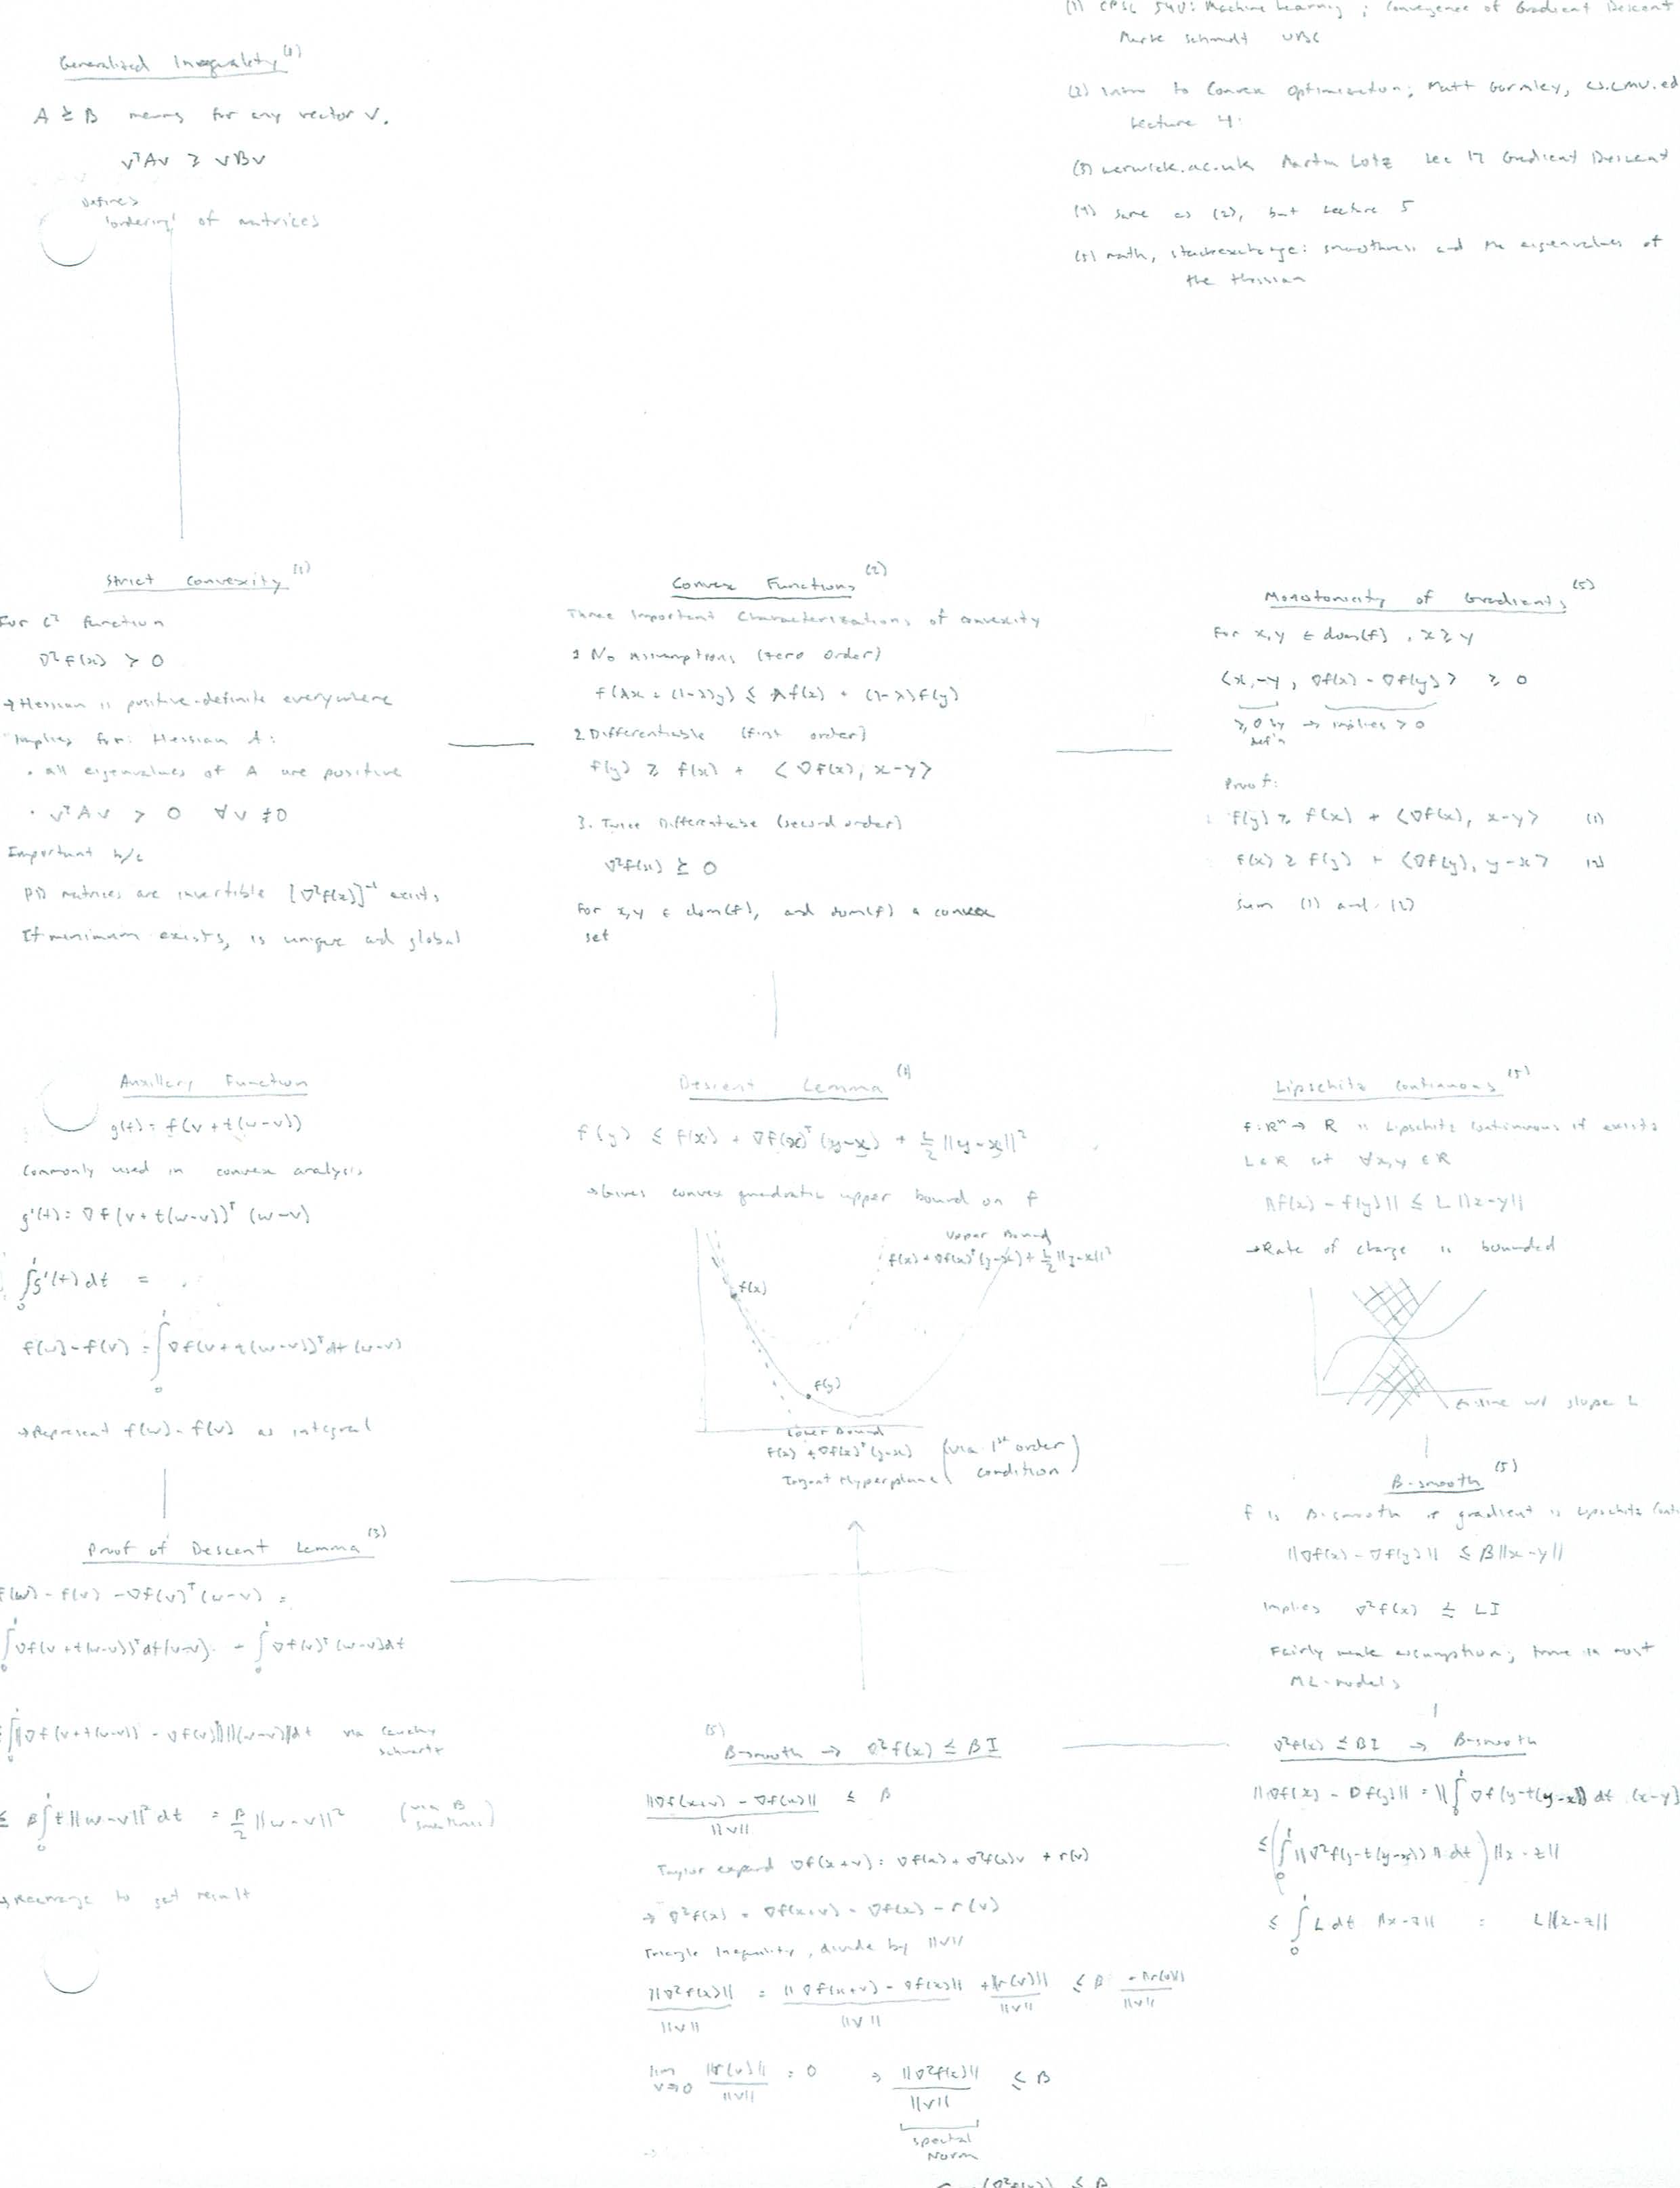 (1) CPSC 540: Machine Learning ; Convergence of Gradient Descent
Mark Schmidt UBC
(2) Intro to Convex Optimization; Matt Gormley, cs.cmu.ed
Lecture 4.
(3) warwick.ac.uk Martin Lotz Lec 17 Gradient Descent
(4) same as (2), but Lecture 5
(5) math, stackexchange: smoothness and the eigenvalues of
the Hessian
Generalized Inequality (1)
A ⪰ B means for any vector v.
vᵀAv ≥ vBv
defines
'ordering' of matrices
Strict Convexity (1)
For C² function
∇²f(x) ≻ 0
→ Hessian is positive-definite everywhere
Implies for: Hessian A:
• all eigenvalues of A are positive
• vᵀAv > 0 ∀v ≠ 0
Important b/c
PD matrices are invertible [∇²f(x)]⁻¹ exists
If minimum exists, is unique and global
Convex Functions (2)
Three Important Characterizations of convexity
1 No Assumptions (zero order)
f(λx + (1-λ)y) ≤ λf(x) + (1-λ)f(y)
2 Differentiable (first order)
f(y) ≥ f(x) + <∇f(x), x-y>
3. Twice Differentiable (second order)
∇²f(x) ⪰ 0
For x,y ∈ dom(f), and dom(f) a convex
set
Monotonicity of Gradients (5)
For x,y ∈ dom(f), x ≥ y
<x-y, ∇f(x) - ∇f(y)> ≥ 0
≥ 0 by → implies > 0
def'n
Proof:
f(y) ≥ f(x) + <∇f(x), x-y> (1)
f(x) ≥ f(y) + <∇f(y), y-x> (2)
sum (1) and (2)
Auxillery Function
g(t) = f(v + t(w-v))
Commonly used in convex analysis
g'(t) = ∇f(v + t(w-v))ᵀ (w-v)
∫₀¹ g'(t) dt =
f(w) - f(v) = ∫₀¹ ∇f(v + t(w-v))ᵀ dt (w-v)
→ Represent f(w) - f(v) as integral
Descent Lemma (1)
f(y) ≤ f(x) + ∇f(x)ᵀ(y-x) + L/2 ||y-x||²
→ Gives convex quadratic upper bound on f
Upper Bound
f(x) + ∇f(x)ᵀ(y-x) + L/2 ||y-x||²
f(x)
f(y)
Lower Bound
f(x) + ∇f(x)ᵀ(y-x) (via 1st order
Tangent Hyperplane condition)
Lipschitz Continuous (5)
f: Rⁿ → R is Lipschitz Continuous if exists
L ∈ R s.t ∀x,y ∈ R
||f(x) - f(y)|| ≤ L||x-y||
→ Rate of change is bounded
line w/ slope L
B-smooth (5)
f is B-smooth if gradient is Lipschitz Conti
||∇f(x) - ∇f(y)|| ≤ β||x-y||
Implies ∇²f(x) ⪯ LI
Fairly weak assumption; true in most
ML-models
Proof of Descent Lemma (3)
f(w) - f(v) - ∇f(v)ᵀ(w-v) =
∫₀¹ ∇f(v + t(w-v))ᵀ dt (w-v) - ∫₀¹ ∇f(v)ᵀ(w-v) dt
≤ ∫₀¹ ||∇f(v + t(w-v)) - ∇f(v)|| ||(w-v)|| dt via Cauchy
Schwartz
≤ β ∫₀¹ t||w-v||² dt = β/2 ||w-v||² (via B
smoothness)
→ Rearrange to get result
(5)
B-smooth → ∇²f(x) ≤ βI
||∇f(x+v) - ∇f(x)|| / ||v|| ≤ β
Taylor expand ∇f(x+v) = ∇f(x) + ∇²f(x)v + r(v)
→ ∇²f(x) = ∇f(x+v) - ∇f(x) - r(v)
Triangle Inequality, divide by ||v||
||∇²f(x)|| / ||v|| = ||∇f(x+v) - ∇f(x)|| / ||v|| + ||r(v)|| / ||v|| ≤ β - ||r(v)|| / ||v||
lim v→0 ||r(v)|| / ||v|| = 0 → ||∇²f(x)|| / ||v|| ≤ β
spectral
Norm
(∇²f(x)) ≤ β
∇²f(x) ⪯ BI → B-smooth
||∇f(x) - ∇f(y)|| = ||∫₀¹ ∇f(y-t(y-x)) dt (x-y)
≤ (∫₀¹ ||∇²f(y-t(y-x))|| dt) ||x-z||
≤ ∫₀¹ L dt ||x-z|| = L||x-z||